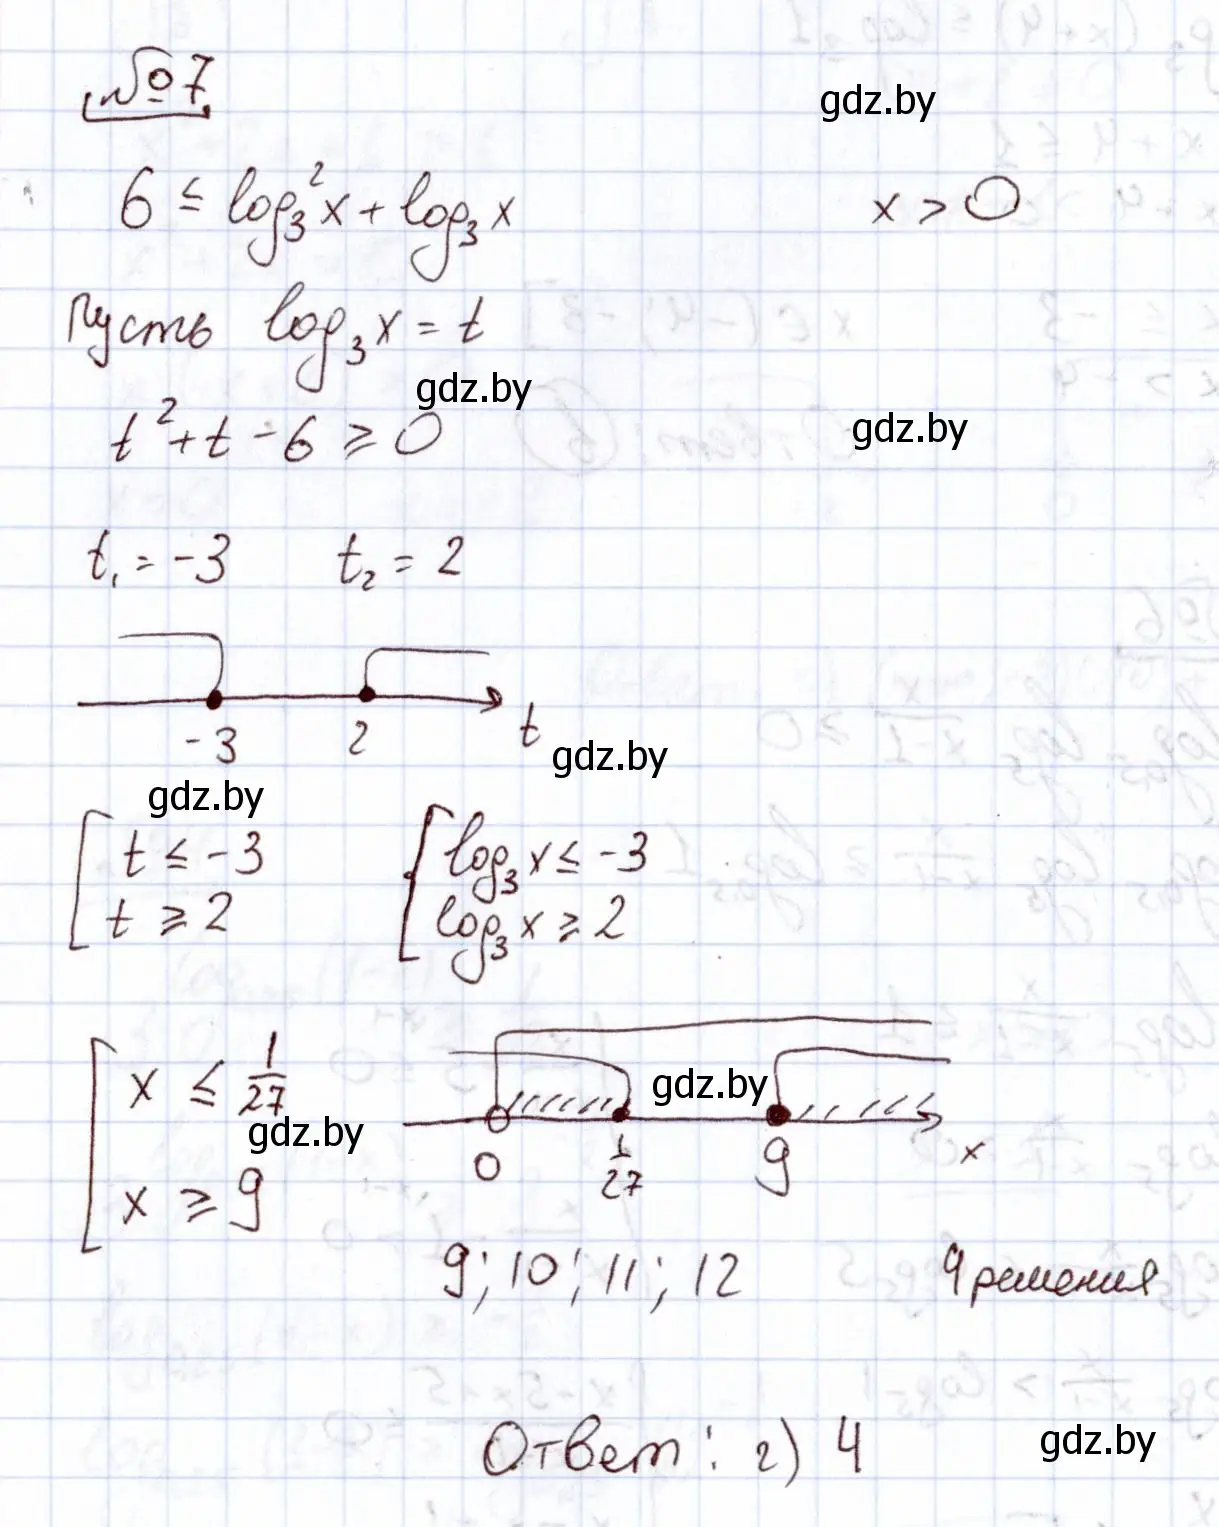 №7
gdz.by
6 ≤ log₃²x + log₃x    x > 0
Пусть log₃x = t
gdz.by
t² + t - 6 ≥ 0
gdz.by
t₁ = -3    t₂ = 2
-3    2    t
gdz.by
gdz.by
[ t ≤ -3    [ log₃x ≤ -3
t ≥ 2    log₃x ≥ 2
[ x ≤ 1/27
gdz.by
gdz.by
0    1/27    9    x
x ≥ 9
9; 10; 11; 12    4 решения
Ответ: г) 4
gdz.by